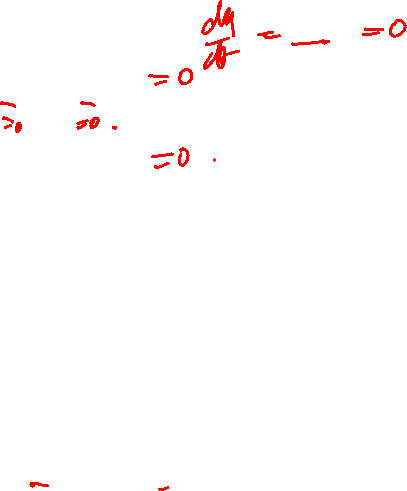 dy/dt = — = 0
= 0
= 0 = 0 .
= 0 .